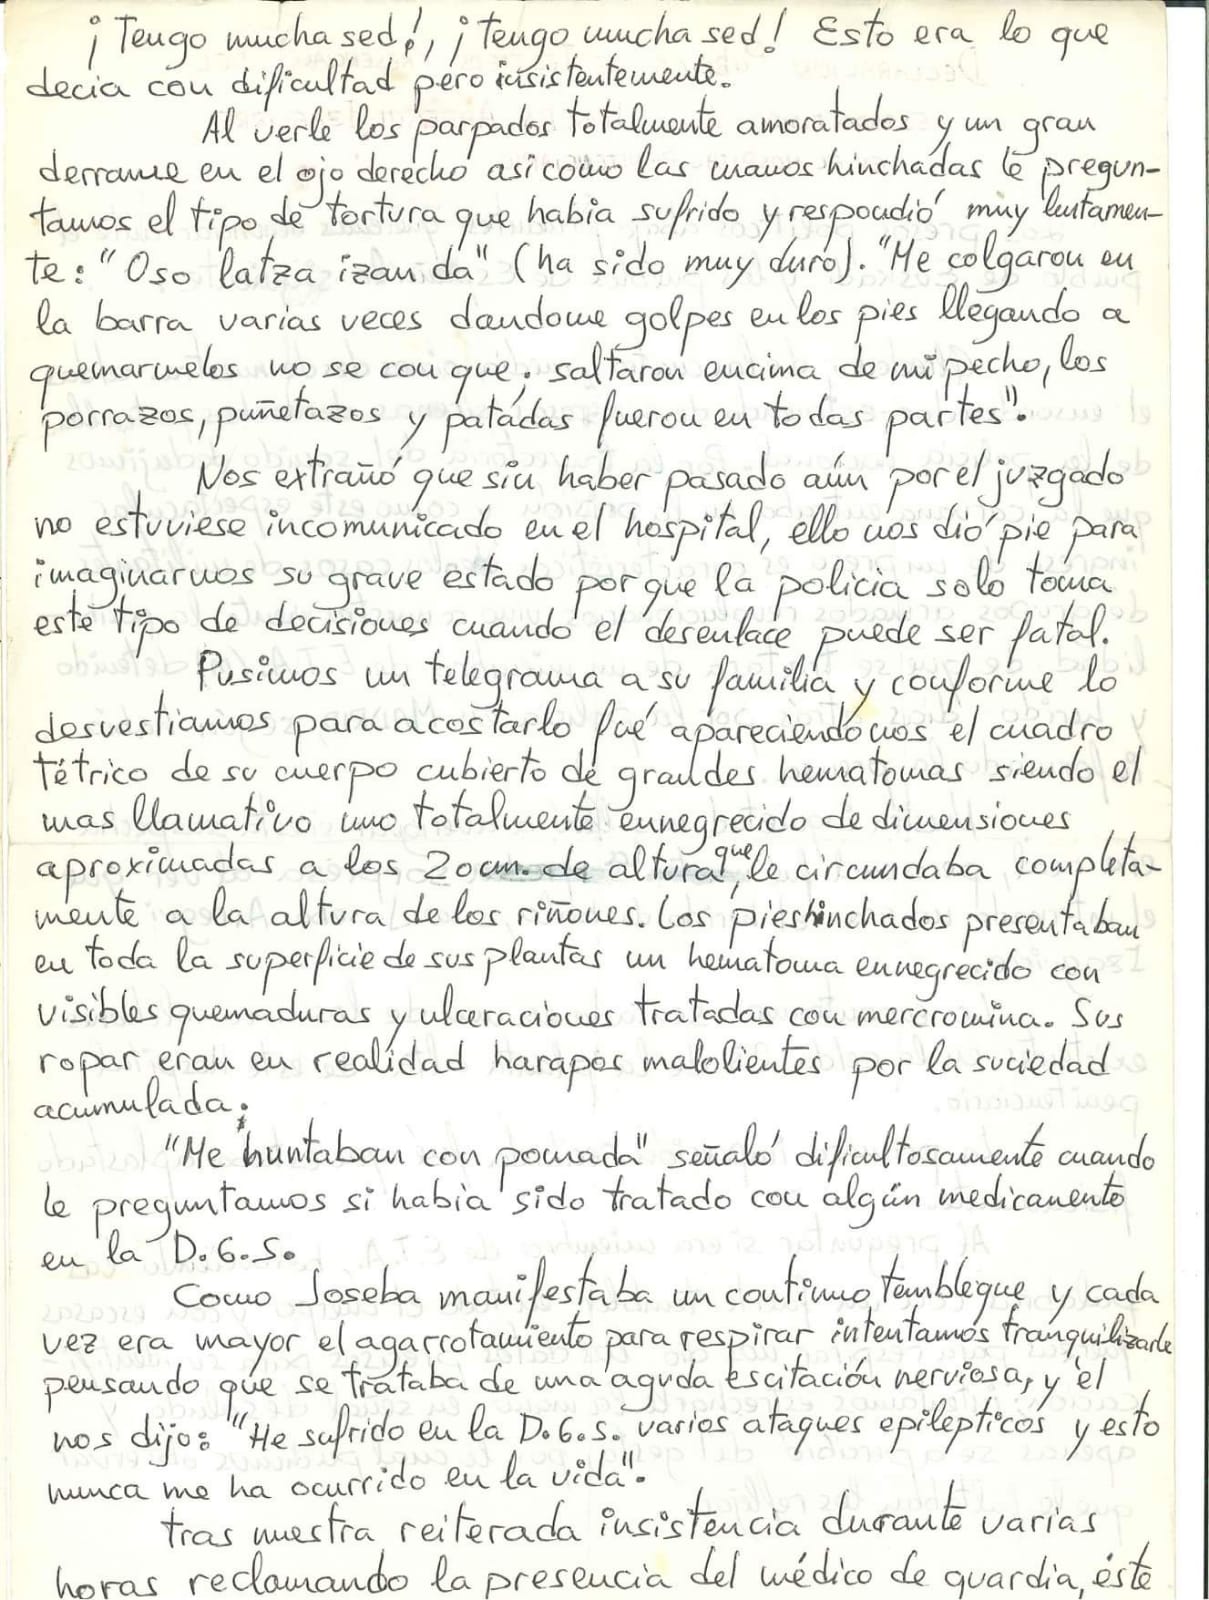 ¡Tengo mucha sed!, ¡tengo mucha sed! Esto era lo que
decia con dificultad pero insistentemente.
Al verle los parpados totalmente amoratados y un gran
derrame en el ojo derecho asi como las manos hinchadas le pregun-
tamos el tipo de tortura que habia sufrido y respondió muy lentamen-
te: "Oso latza izan da" (ha sido muy duro). "Me colgaron en
la barra varias veces dandome golpes en los pies llegando a
quemarmelos no se con que; saltaron encima de mi pecho, los
porrazos, puñetazos y patadas fueron en todas partes".
Nos extrañó que sin haber pasado aún por el juzgado
no estuviese incomunicado en el hospital, ello nos dió pie para
imaginarnos su grave estado por que la policia solo toma
este tipo de decisiones cuando el desenlace puede ser fatal.
Pusimos un telegrama a su familia y conforme lo
desvestiamos para acostarlo fué apareciendonos el cuadro
tétrico de su cuerpo cubierto de grandes hematomas siendo el
mas llamativo uno totalmente ennegrecido de dimensiones
aproximadas a los 20 cm. de altura, que le circundaba completa-
mente a la altura de los riñones. Los pies hinchados presentaban
en toda la superficie de sus plantas un hematoma ennegrecido con
visibles quemaduras y ulceraciones tratadas con mercromina. Sus
ropar eran en realidad harapos malolientes por la suciedad
acumulada.
"Me huntaban con pomada" señaló dificultosamente cuando
le preguntamos si habia sido tratado con algún medicamento
en la D.G.S.
Como Joseba manifestaba un continuo tembleque y cada
vez era mayor el agarrotamiento para respirar intentamos tranquilizarle
pensando que se trataba de una aguda escitación nerviosa, y él
nos dijo: "He sufrido en la D.G.S. varios ataques epilepticos y esto
nunca me ha ocurrido en la vida".
Tras nuestra reiterada insistencia durante varias
horas reclamando la presencia del médico de guardia, éste